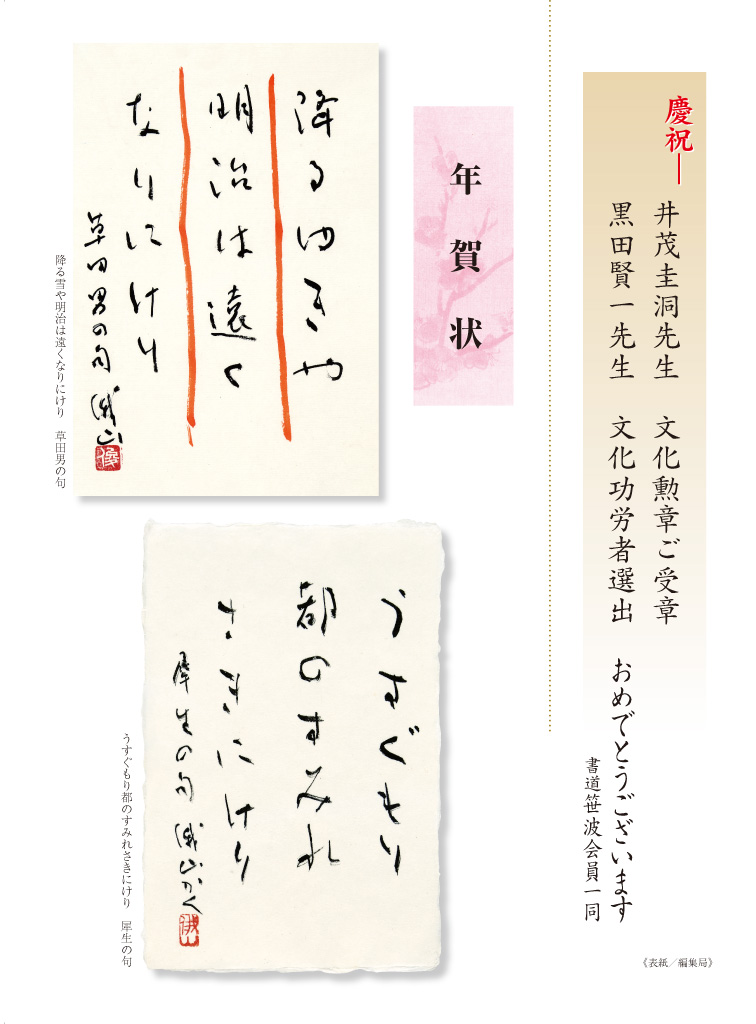 慶祝―
井茂圭洞先生　文化勲章ご受章
黒田賢一先生　文化功労者選出　おめでとうございます
書道笹波会員一同
年賀状
降るゆきや
明治は遠く
なりにけり
草田男の句
降る雪や明治は遠くなりにけり　草田男の句
うすぐもり
都のすみれ
さきにけり
犀生の句
うすぐもり都のすみれさきにけり　犀生の句
《表紙／編集局》